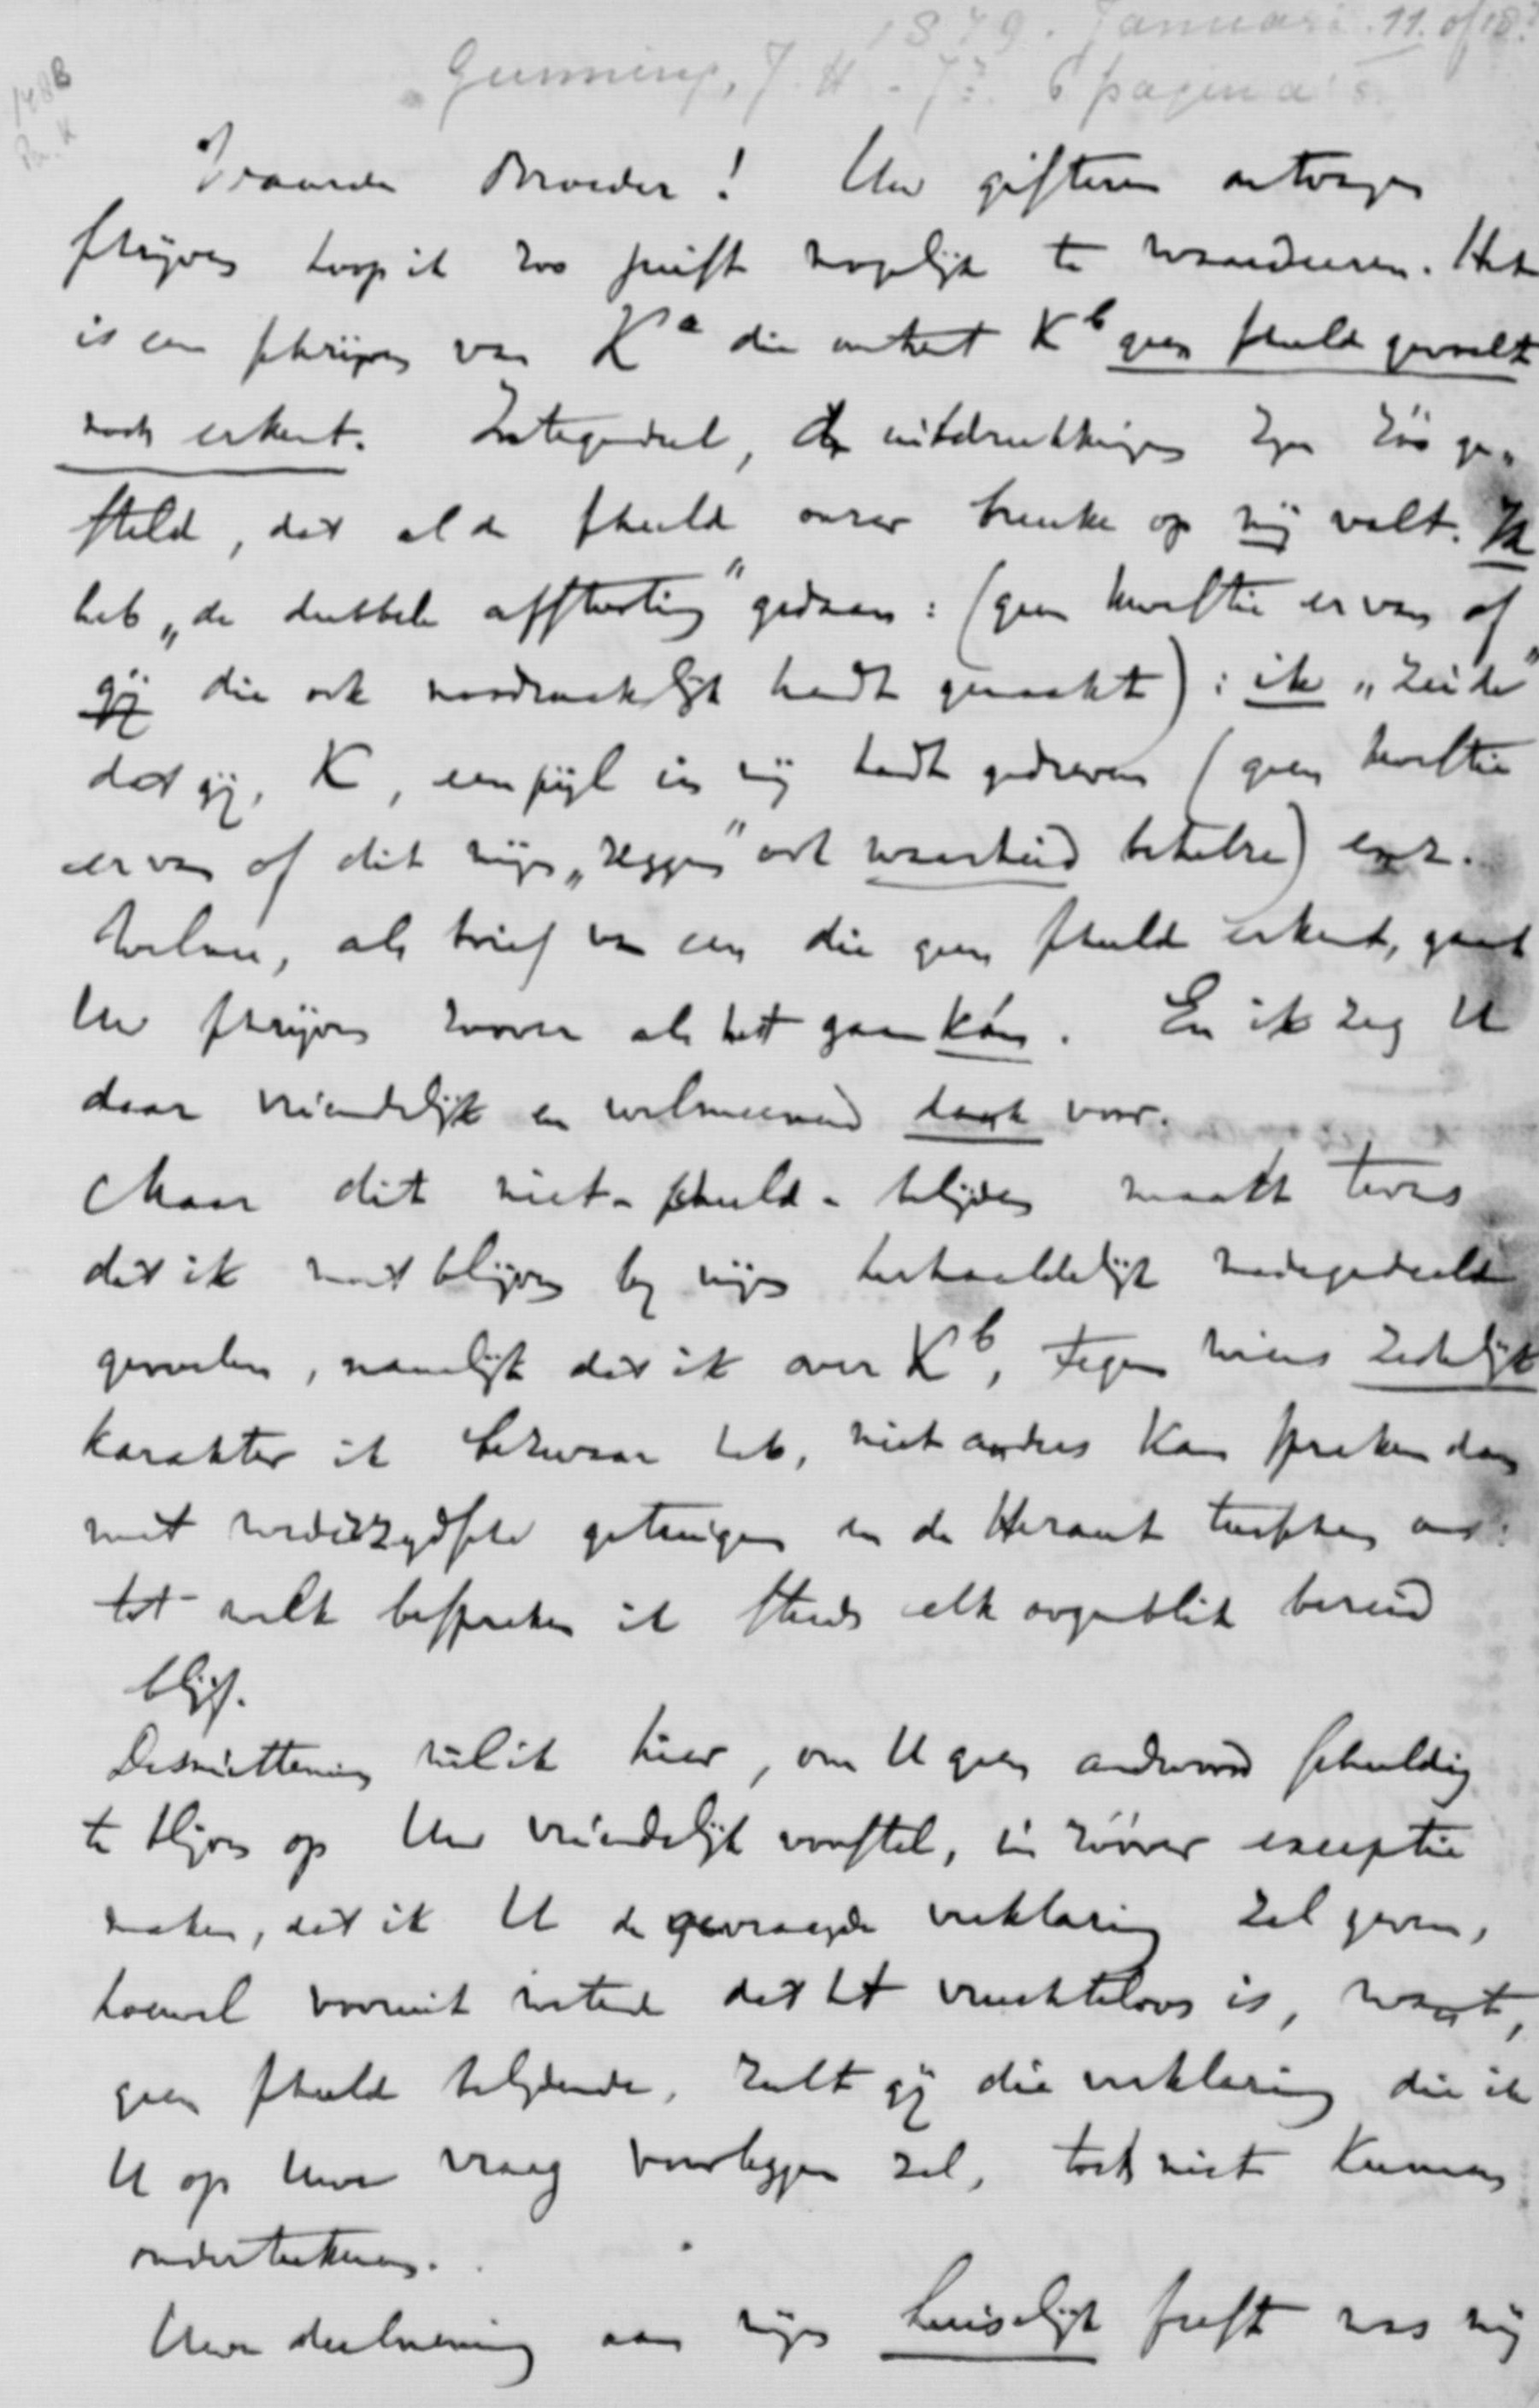 1879. Januari. 11. of 18?
Gunning, J. H. Jz. 6 pagina's
148B
Waarde Broeder! Uw gisteren ontvangen
schrijven hoop ik zoo juist mogelijk te waardeeren. Het
is een schrijven van Kª die omtrent Kᵇ geen schuld gevoelt
noch erkent. Integendeel, de uitdrukkingen zijn zóó ge„
steld, dat al de schuld onzer breuke op mij valt. Ik
heb „de dubbele afscheiding" gedaan: (geen kwestie ervan of
gij die ook noodzakelijk hadt gemaakt): ik „zeide"
dat gij, K, een pijl in mij hadt gedreven (geen kwestie
ervan of dit mijn „zeggen" ook waarheid behelze) enz.
Welnu, als brief van een die geen schuld erkent, gaat
Uw schrijven zoover als het gaan kán. En ik zeg U
daar vriendelijk en welmeenend dank voor.
Maar dit niet-schuld-belijden maakt tevens
dat ik moet blijven bij mijn herhaaldelijk medegedeeld
gevoelen, namelijk dat ik over Kᵇ, tegen wiens zedelijk
karakter ik bezwaar heb, niet anders kan spreken dan
met wederzijdsche getuigen en de Heraut tusschen ons:
tot welk bespreken ik steeds elk oogenblik bereid
blijf.
Desniettemin wil ik hier, om U geen antwoord schuldig
te blijven op Uw vriendelijk voorstel, in zóóver exceptie
maken, dat ik U de gevraagde verklaring zal geven,
hoewel vooruit wetend dat het vruchteloos is, want,
geen schuld belijdende, zult gij die verklaring die ik
U op Uwe vraag voorleggen zal, toch niet kunnen
onderteekenen.
Uwe deelneming aan mijn huiselijk feest was mij